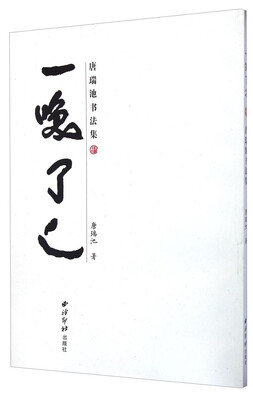 唐瑞池书法集
一 了之
唐瑞池 著
西泠印社
出版社